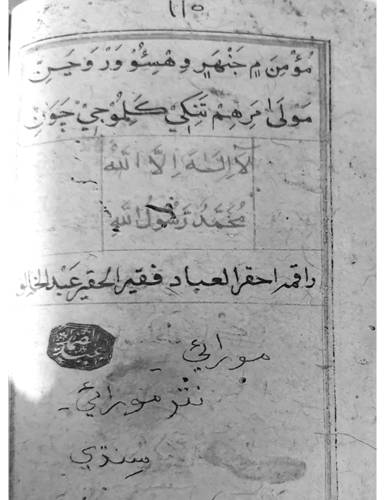 ١١٥
مؤمن ۾ جنهر وهسئو ور وحن
مولا مرهم تنکي ڪلمو جي چون
لا اله الا الله
محمد رسول الله
راقمه احقر العباد فقير الحقير عبد الخالو
مورائي
نثر مورائي
سندي